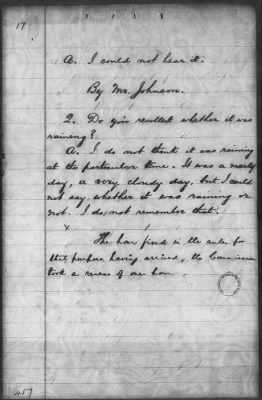 17
A. I could not hear it.
By Mr. Johnson.
Q. Do you recollect whether it was
raining?
A. I do not think it was raining
at the particular time. It was a
day, a very cloudy day, but I could
not say whether it was raining or
not. I do not remember that.
x
The hour fixed in the rules for
that purpose having arrived, the Commission
took a recess of one hour.
457